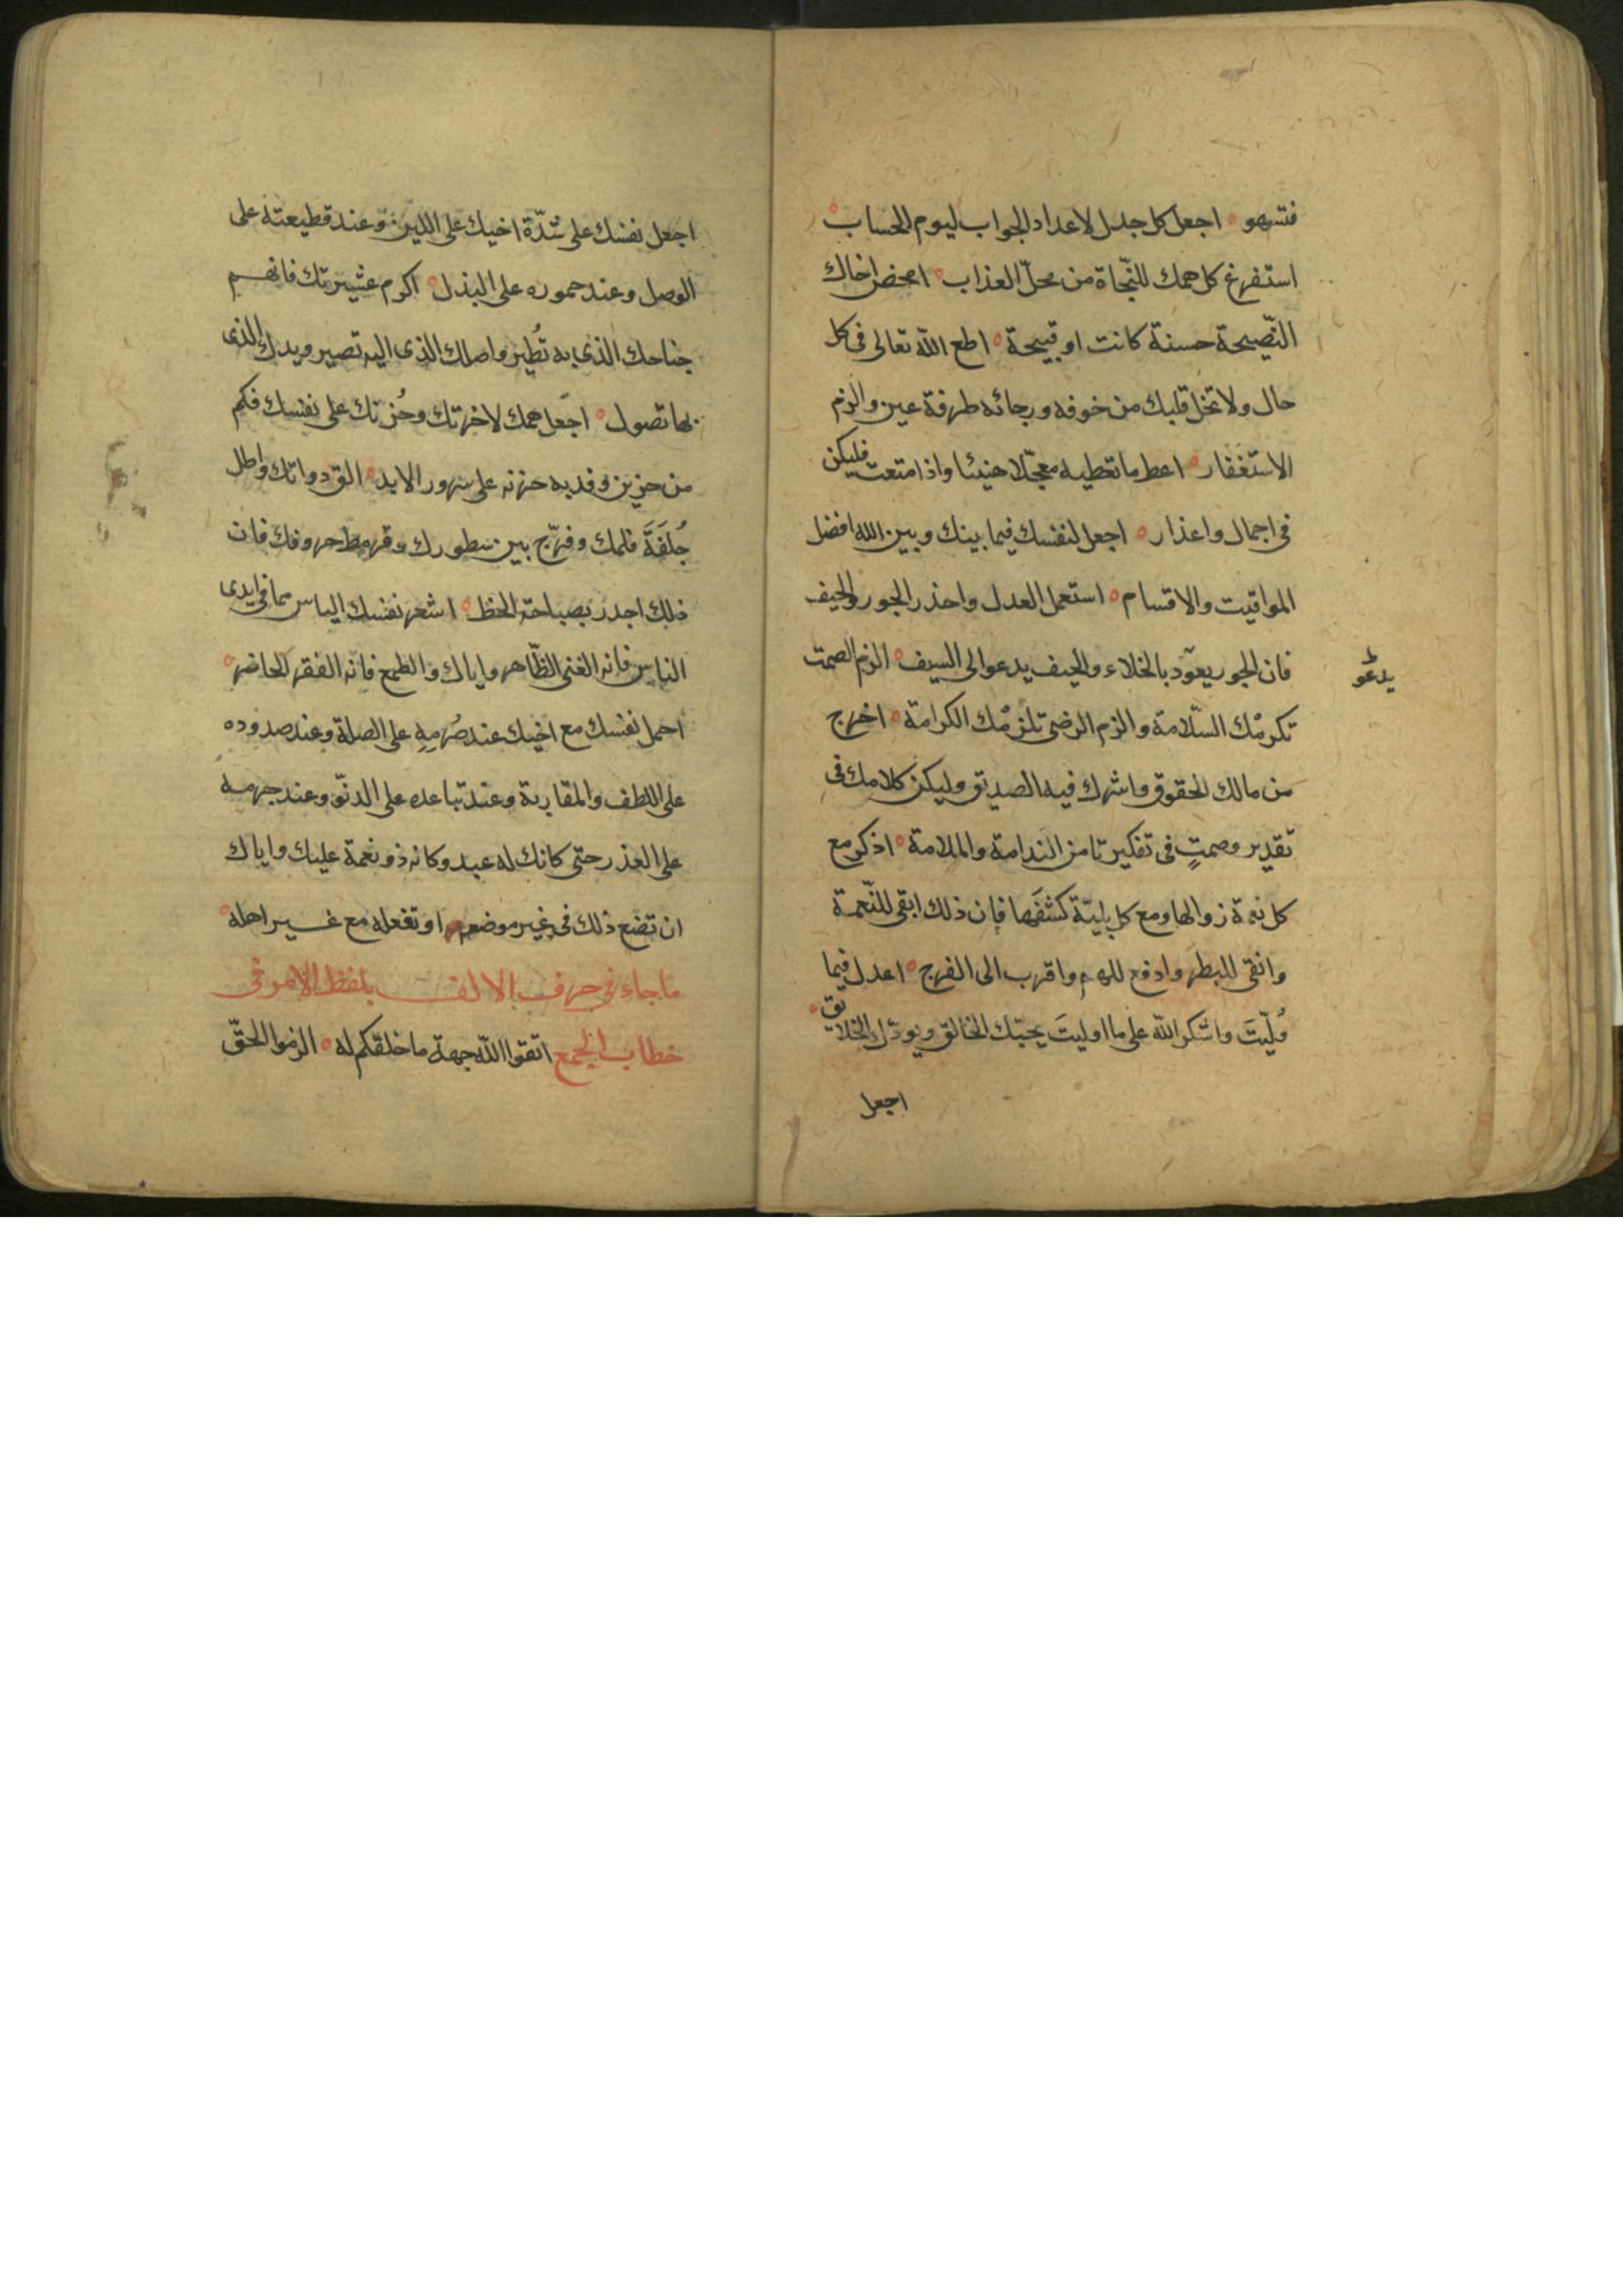 فتسهو ° اجعل كل جدل لاعداد الجواب ليوم الحساب °
استفرغ كل همك للنّجاة من محلّ العذاب ° امحض اخاك
النّصيحة حسنة كانت او قبيحة ° اطع اللّه تعالى فى كل
حال ولا تخل قلبك من خوفه ورجائه طرفة عين والزم
الاستغفار ° اعط ما تعطيه معجّلا هنيئا واذا منعت فليكن
فى اجمال واعذار ° اجعل لنفسك فيما بينك وبين الله افضل
المواقيت والاقسام ° استعمل العدل واحذر الجور والحيف
فان الجور يعوّد بالخلاء والحيف يدعو الى السيف ° الزم الصمت
يدعو
تكرمْك السّلامة والزم الرضى تلزمْك الكرامة ° اخرج
من مالك الحقوق واشرك فيه الصديق وليكن كلامك فى
تقدير وصمتٍ فى تفكير تامن الندامة والملامة ° اذكر مع
كل نعمة زوالها ومع كل بليّة كشفَها فان ذلك ابقى للنّعمة
وانفى للبطر وادفع للهم واقرب الى الفرج ° اعدل فيما
وُلّيتَ واشكر اللّه على ما اوليتَ يحبّك الخالق ويودّك الخلايق °
اجعل
اجعل نفسك على شدّة اخيك على اللين وعند قطيعته على
الوصل وعند جموده على البذل ° اكرم عشيرتك فانهم
جناحك الذى به تُطير واصلك الذى اليه تصير ويدك الذى
بها تصول ° اجعل همك لاخرتك وحُزنك على نفسك فكم
من حزين وفد به حزنه على سرور الابد ° الق دواتك واطل
جُلفَةَ قلمك وفرّج بين سطورك وقرمط حروفك فان
ذلك اجدر بصباحة الخظ ° اشعر نفسك الياس مما فى ايدى
الناس فانه الغنى الظّاهر واياك والطمع فانه الفقر الحاضر °
احمل نفسك مع اخيك عند صُرمِهِ على الصلة وعند صدوده
على اللطف والمقاربة وعند تباعده على الدنوّ وعند جرمه
على العذر حتى كانك له عبد وكانه ذو نعمة عليك واياك
ان تضع ذلك فى غير موضعه او تفعله مع غير اهله °
ما جاء فى حرف الالف بلفظ الامر فى
خطاب الجمع اتقوا اللّه جهة ما خلقكم له ° الزموا الحقّ